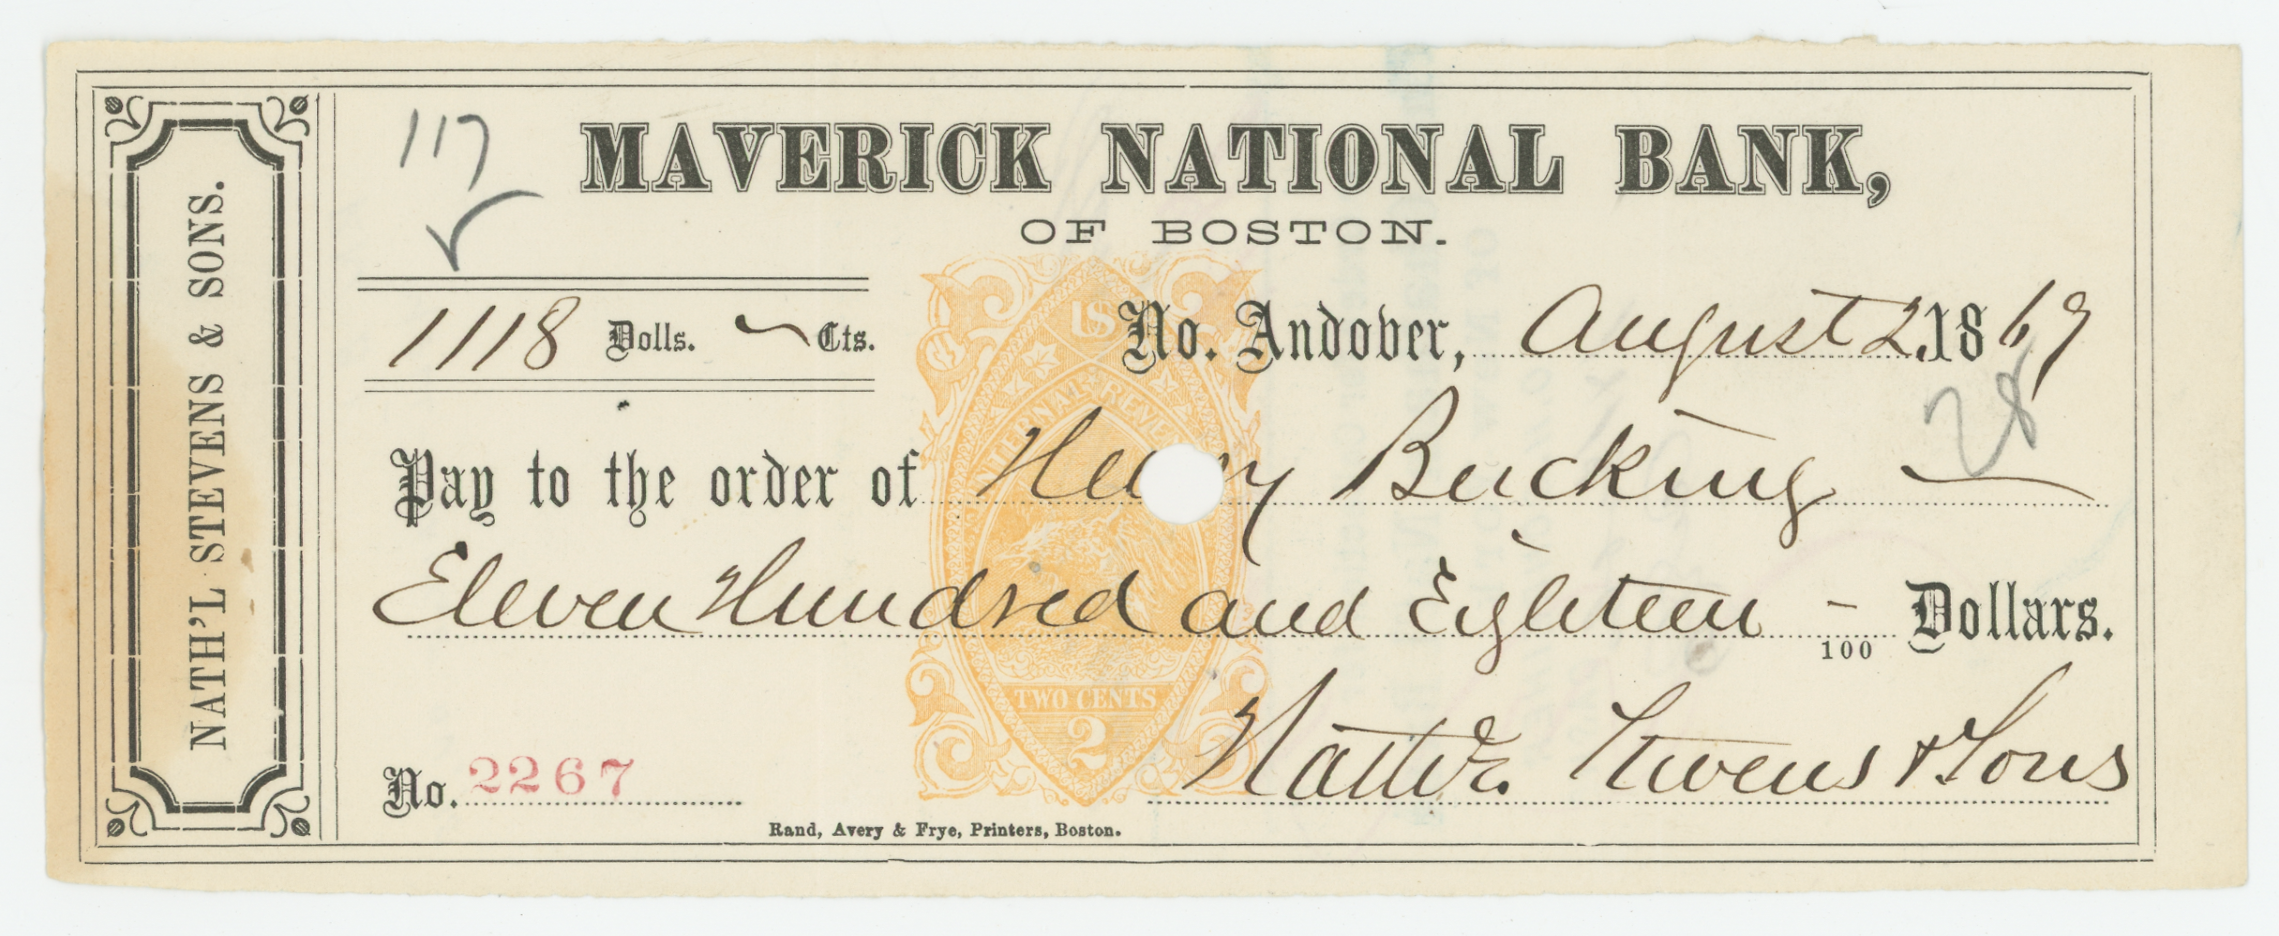 NATH'L STEVENS & SONS.
117
MAVERICK NATIONAL BANK,
OF BOSTON.
1118 Dolls. ~ Cts.
US
No. Andover, August 2. 1869
28
INTERNAL REVE
Pay to the order of Henry Bucking
Eleven Hundred and Eighteen - 100 Dollars.
TWO CENTS
2
Stevens & Sons
No. 2267
Rand, Avery & Frye, Printers, Boston.